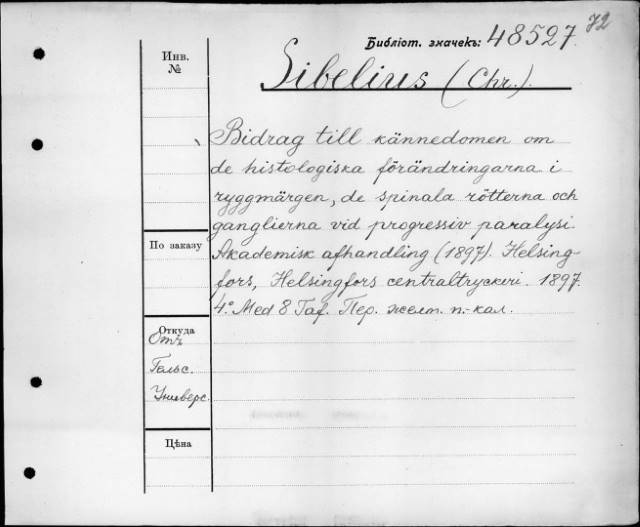 72
Библіот. значекъ: 48527.
Инв.
№
Sibelius (Chr.).
Bidrag till kännedomen om
de histologiska förändringarna i
ryggmärgen, de spinala rötterna och
ganglierna vid progressiv paralysi.
По заказу
Akademisk afhandling (1897). Helsing-
fors, Helsingfors centraltryckeri. 1897.
4º Med 8 Taf. Пер. желт. п.-кал.
Откуда
Отъ
Гельс.
Универс.
Цѣна